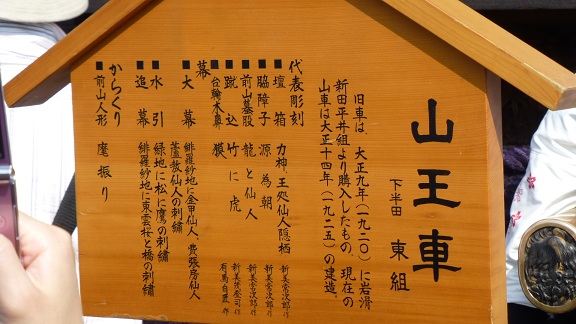 山王車
下半田 東組
旧車は、大正九年(一九二〇)に岩滑
新田平井組より購入したもの。現在の
山車は大正十四年(一九二五)の建造。
代表彫刻
■壇箱 力神、王処仙人隠栖 新美常次郎作
■脇障子 源為朝 新美常次郎作
■前山蟇股 龍と仙人 新美常次郎作
■蹴込 竹に虎
■台輪木鼻 獏
幕
■大幕 緋羅紗地に金甲仙人、費張房仙人
蘆敖仙人の刺繍
■水引 緑地に松に鷹の刺繍
■追幕 緋羅紗地に東雲桜と橋の刺繍
からくり
■前山人形 麾振り